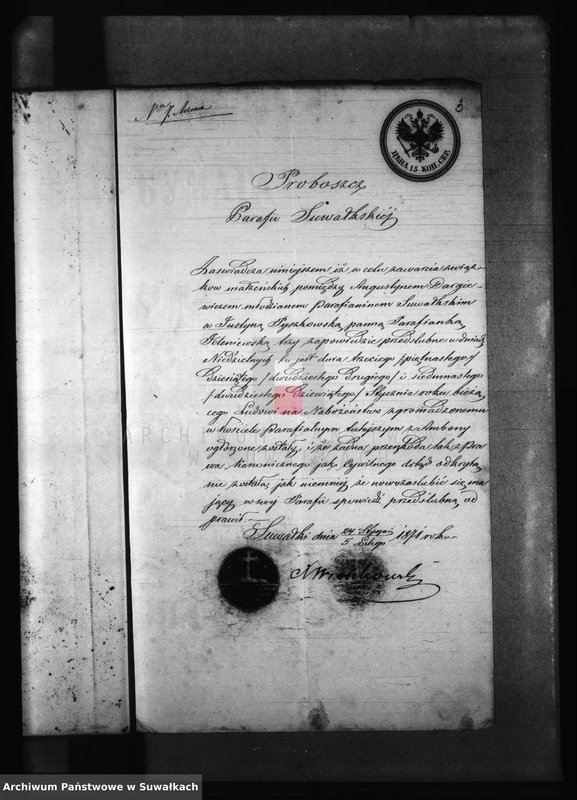 3
ЦѢНА 15 КОП. СЕР.
Proboszcz
Parafii Suwałkskiéj
Zaświadcza niniejszem iż w celu zawarcia związ-
ków małżeńskich pomiędzy Augustynem Dargie-
wiczem młodzianem Parafianinem Suwałkskim
a Justyną Pyszkowską panną Parafianką
Jeleniewską trzy zapowiedzie przedślubne w dniach
Niedzielnych to jest dnia trzeciego /piętnastego/
Dziesiątego /dwudziestego Drugiego/ i siedmnastego
/dwudziestego Dziewiątego/ Stycznia roku bieżą-
cego Ludowi na Nabożeństwo zgromadzonemu
w kościele Parafialnym tutejszym z Ambony
ogłoszone zostały, i że żadna przeszkoda tak z Pra-
wa kanonicznego jak Cywilnego dotąd odkrytą
nie została, jak niemniéj że nowozaślubić się ma-
jący w swéj Parafii spowiedź przedślubną od-
prawił.
Suwałki dnia 24 Stycznia / 5 Lutego 1871 roku
Archiwum Państwowe w Suwałkach